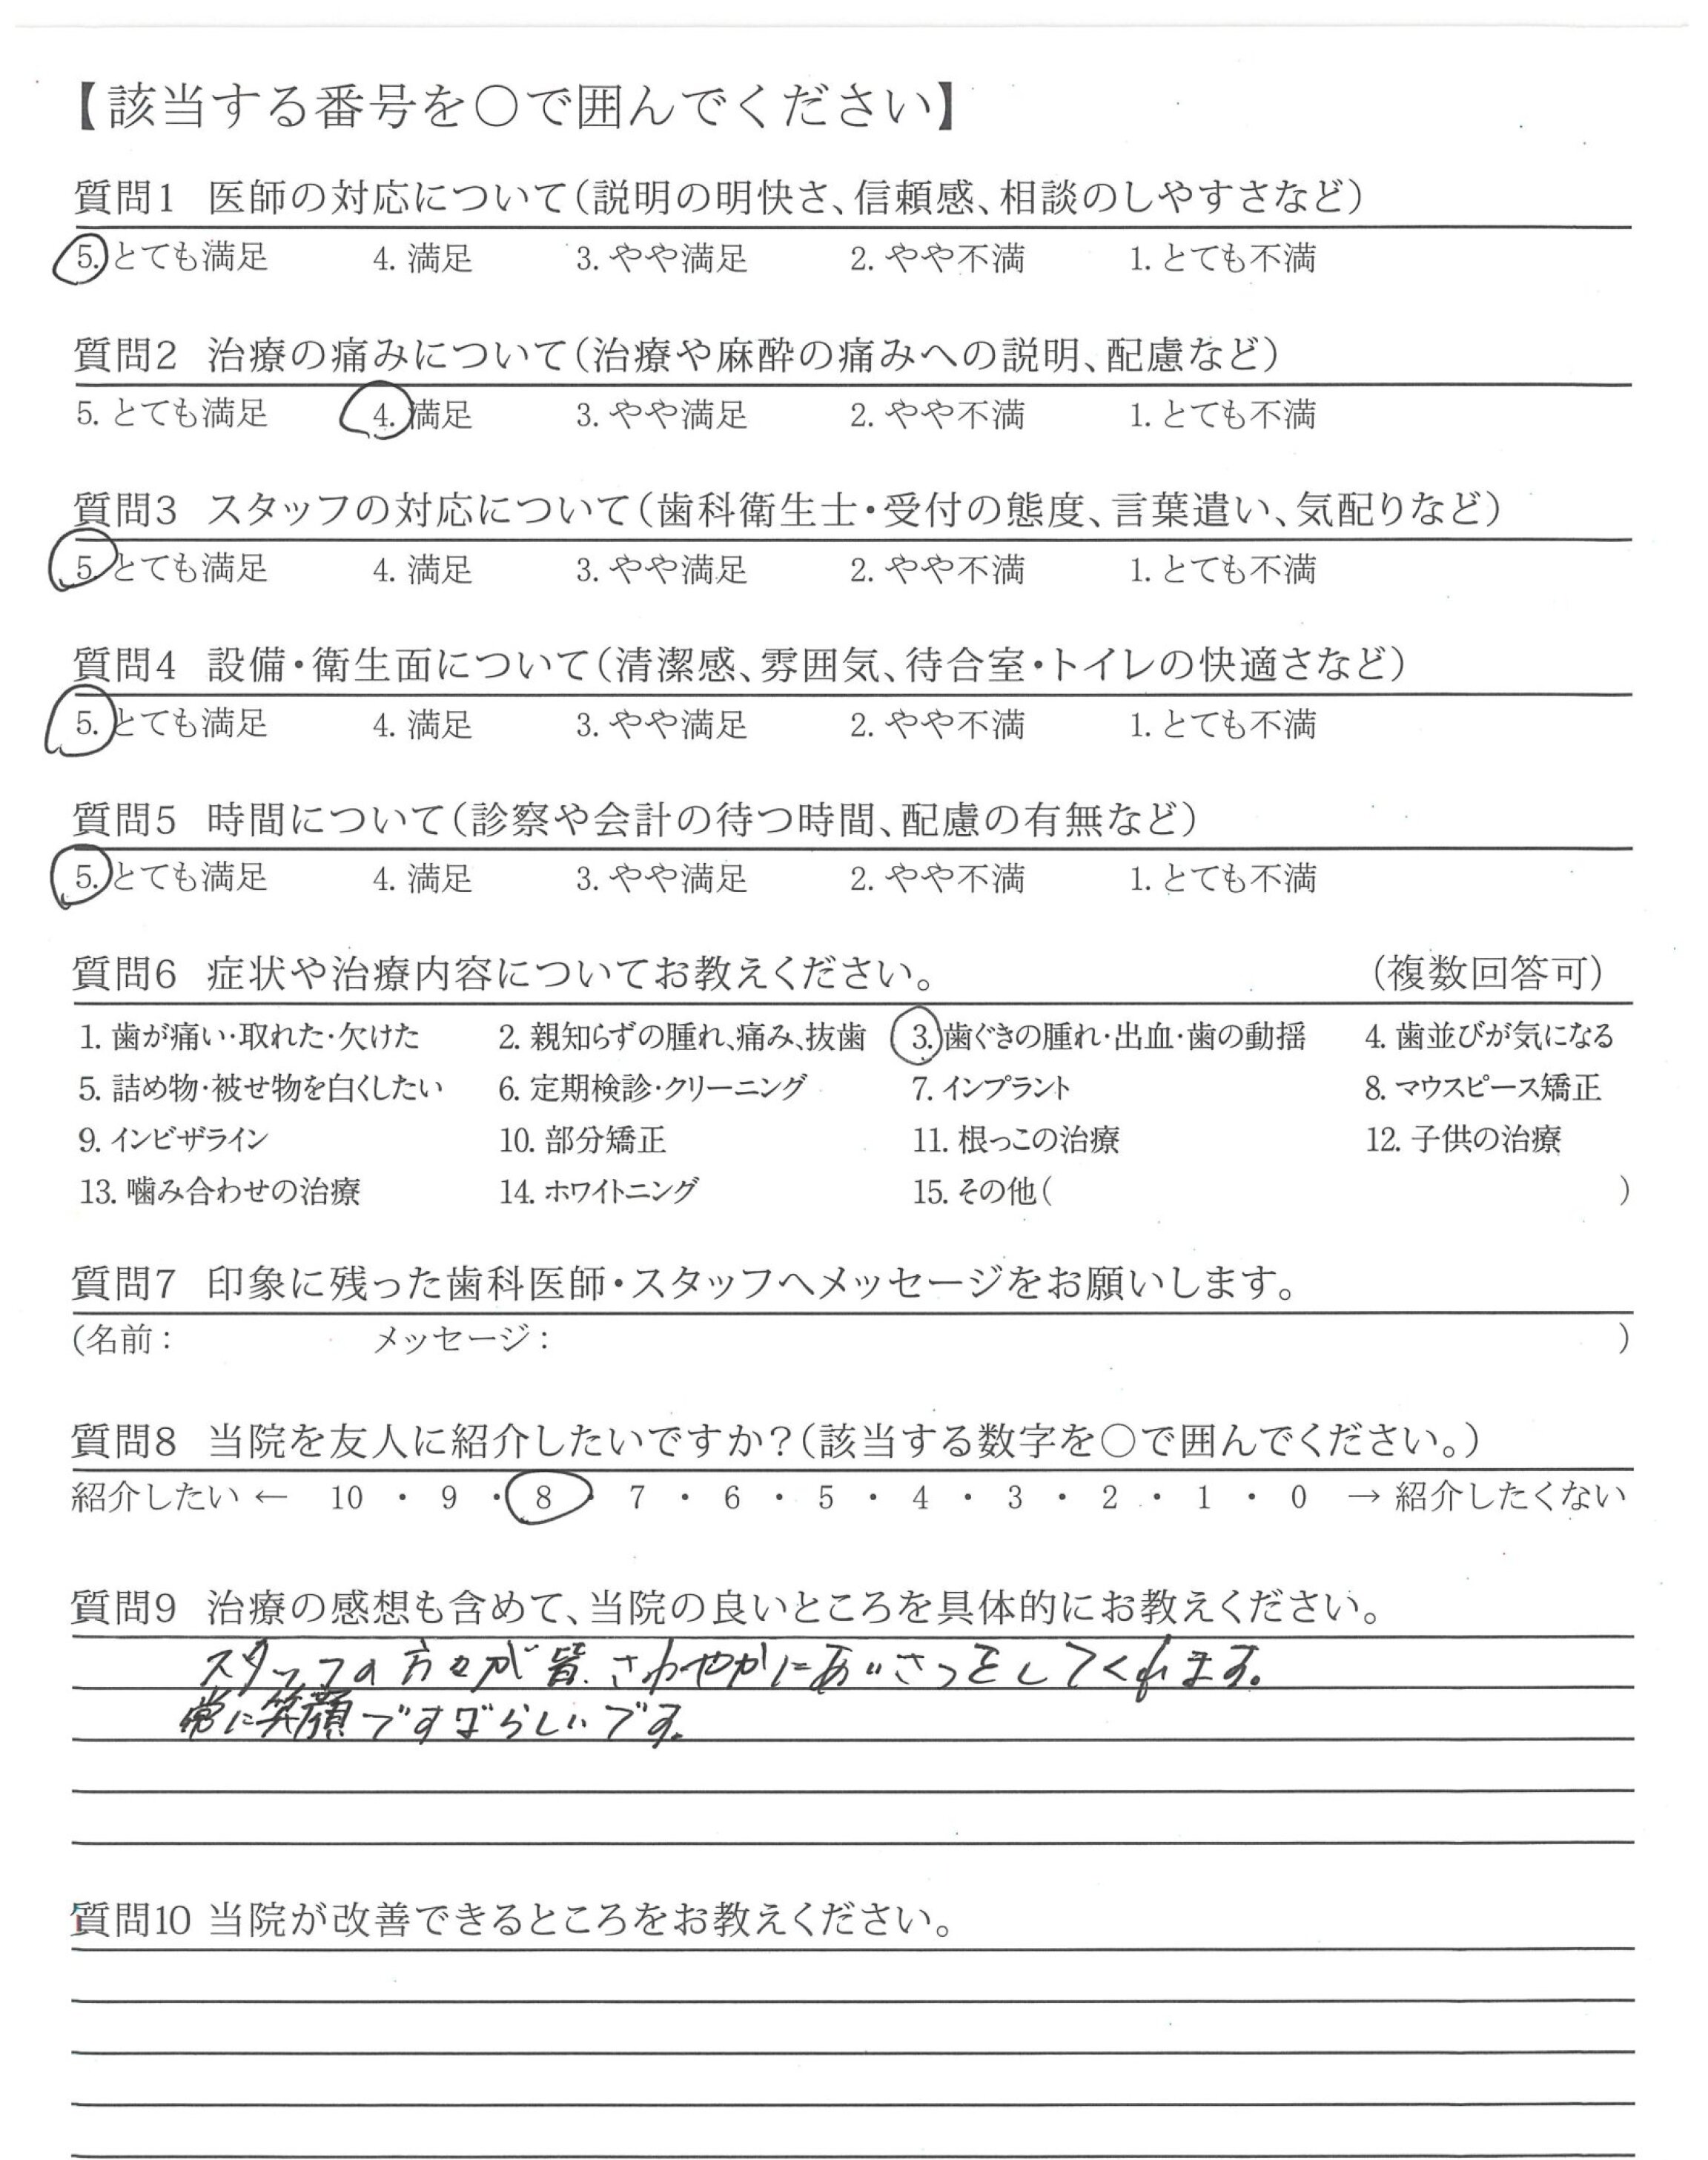 【該当する番号を○で囲んでください】
質問1 医師の対応について(説明の明快さ、信頼感、相談のしやすさなど)
5. とても満足 4. 満足 3. やや満足 2. やや不満 1. とても不満
質問2 治療の痛みについて(治療や麻酔の痛みへの説明、配慮など)
5. とても満足 4. 満足 3. やや満足 2. やや不満 1. とても不満
質問3 スタッフの対応について(歯科衛生士・受付の態度、言葉遣い、気配りなど)
5. とても満足 4. 満足 3. やや満足 2. やや不満 1. とても不満
質問4 設備・衛生面について(清潔感、雰囲気、待合室・トイレの快適さなど)
5. とても満足 4. 満足 3. やや満足 2. やや不満 1. とても不満
質問5 時間について(診察や会計の待つ時間、配慮の有無など)
5. とても満足 4. 満足 3. やや満足 2. やや不満 1. とても不満
質問6 症状や治療内容についてお教えください。 (複数回答可)
1. 歯が痛い・取れた・欠けた 2. 親知らずの腫れ、痛み、抜歯 3. 歯ぐきの腫れ・出血・歯の動揺 4. 歯並びが気になる
5. 詰め物・被せ物を白くしたい 6. 定期検診・クリーニング 7. インプラント 8. マウスピース矯正
9. インビザライン 10. 部分矯正 11. 根っこの治療 12. 子供の治療
13. 噛み合わせの治療 14. ホワイトニング 15. その他( )
質問7 印象に残った歯科医師・スタッフへメッセージをお願いします。
(名前: メッセージ: )
質問8 当院を友人に紹介したいですか?(該当する数字を○で囲んでください。)
紹介したい ← 10 ・ 9 ・ 8 ・ 7 ・ 6 ・ 5 ・ 4 ・ 3 ・ 2 ・ 1 ・ 0 → 紹介したくない
質問9 治療の感想も含めて、当院の良いところを具体的にお教えください。
スタッフの方々が皆、さわやかにあいさつをしてくれます。
常に笑顔ですばらしいです。
質問10 当院が改善できるところをお教えください。